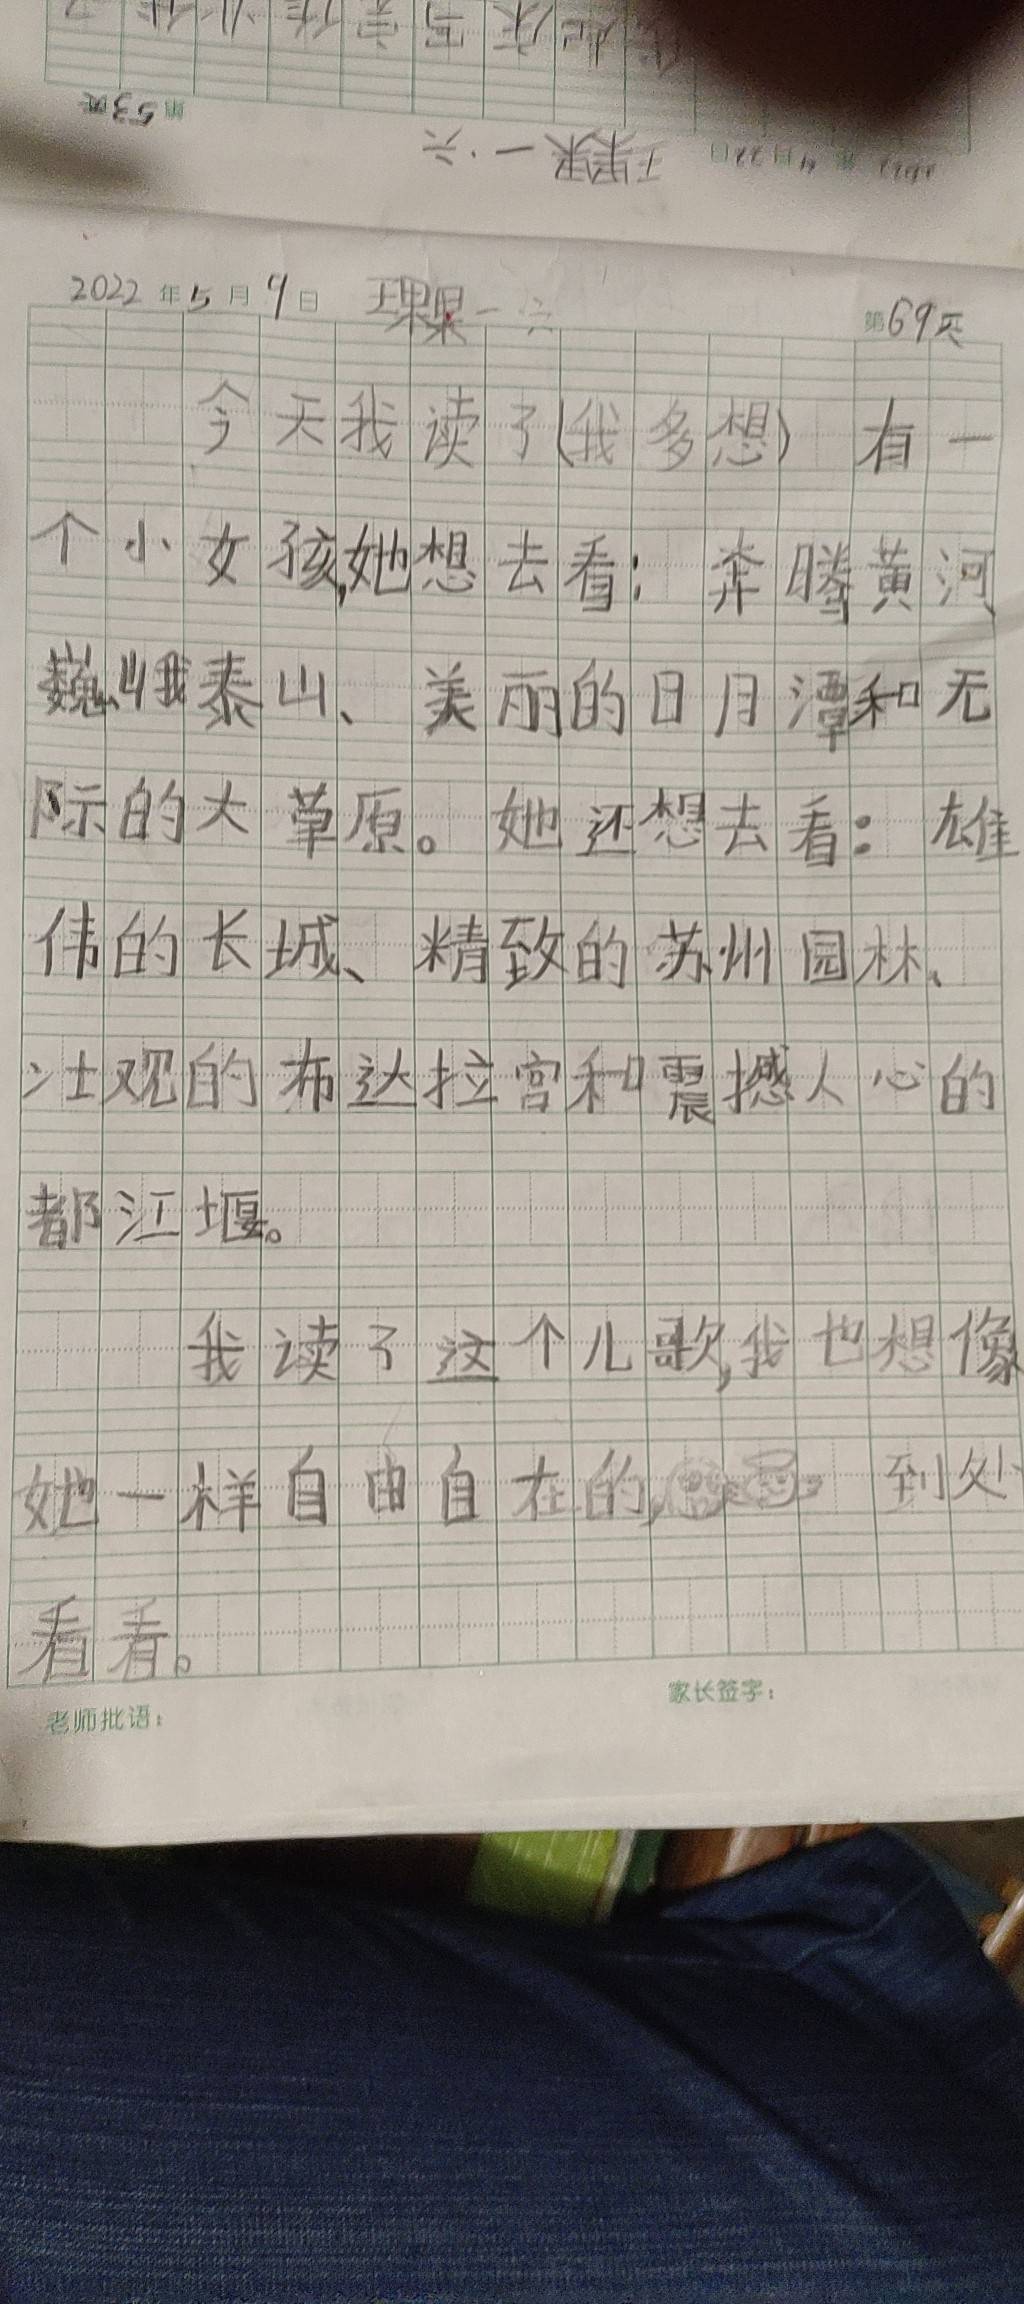 第53页
王果果一.六
2022年5月9日 王果果一.六 第69页
今天我读了(我多想) 有一
个小女孩,她想去看: 奔腾黄河
巍峨泰山、美丽的日月潭和无
际的大草原。她还想去看:雄
伟的长城、精致的苏州园林、
壮观的布达拉宫和震撼人心的
都江堰。
我读了这个儿歌,我也想像
她一样自由自在的, 到处
看看。
家长签字:
老师批语: